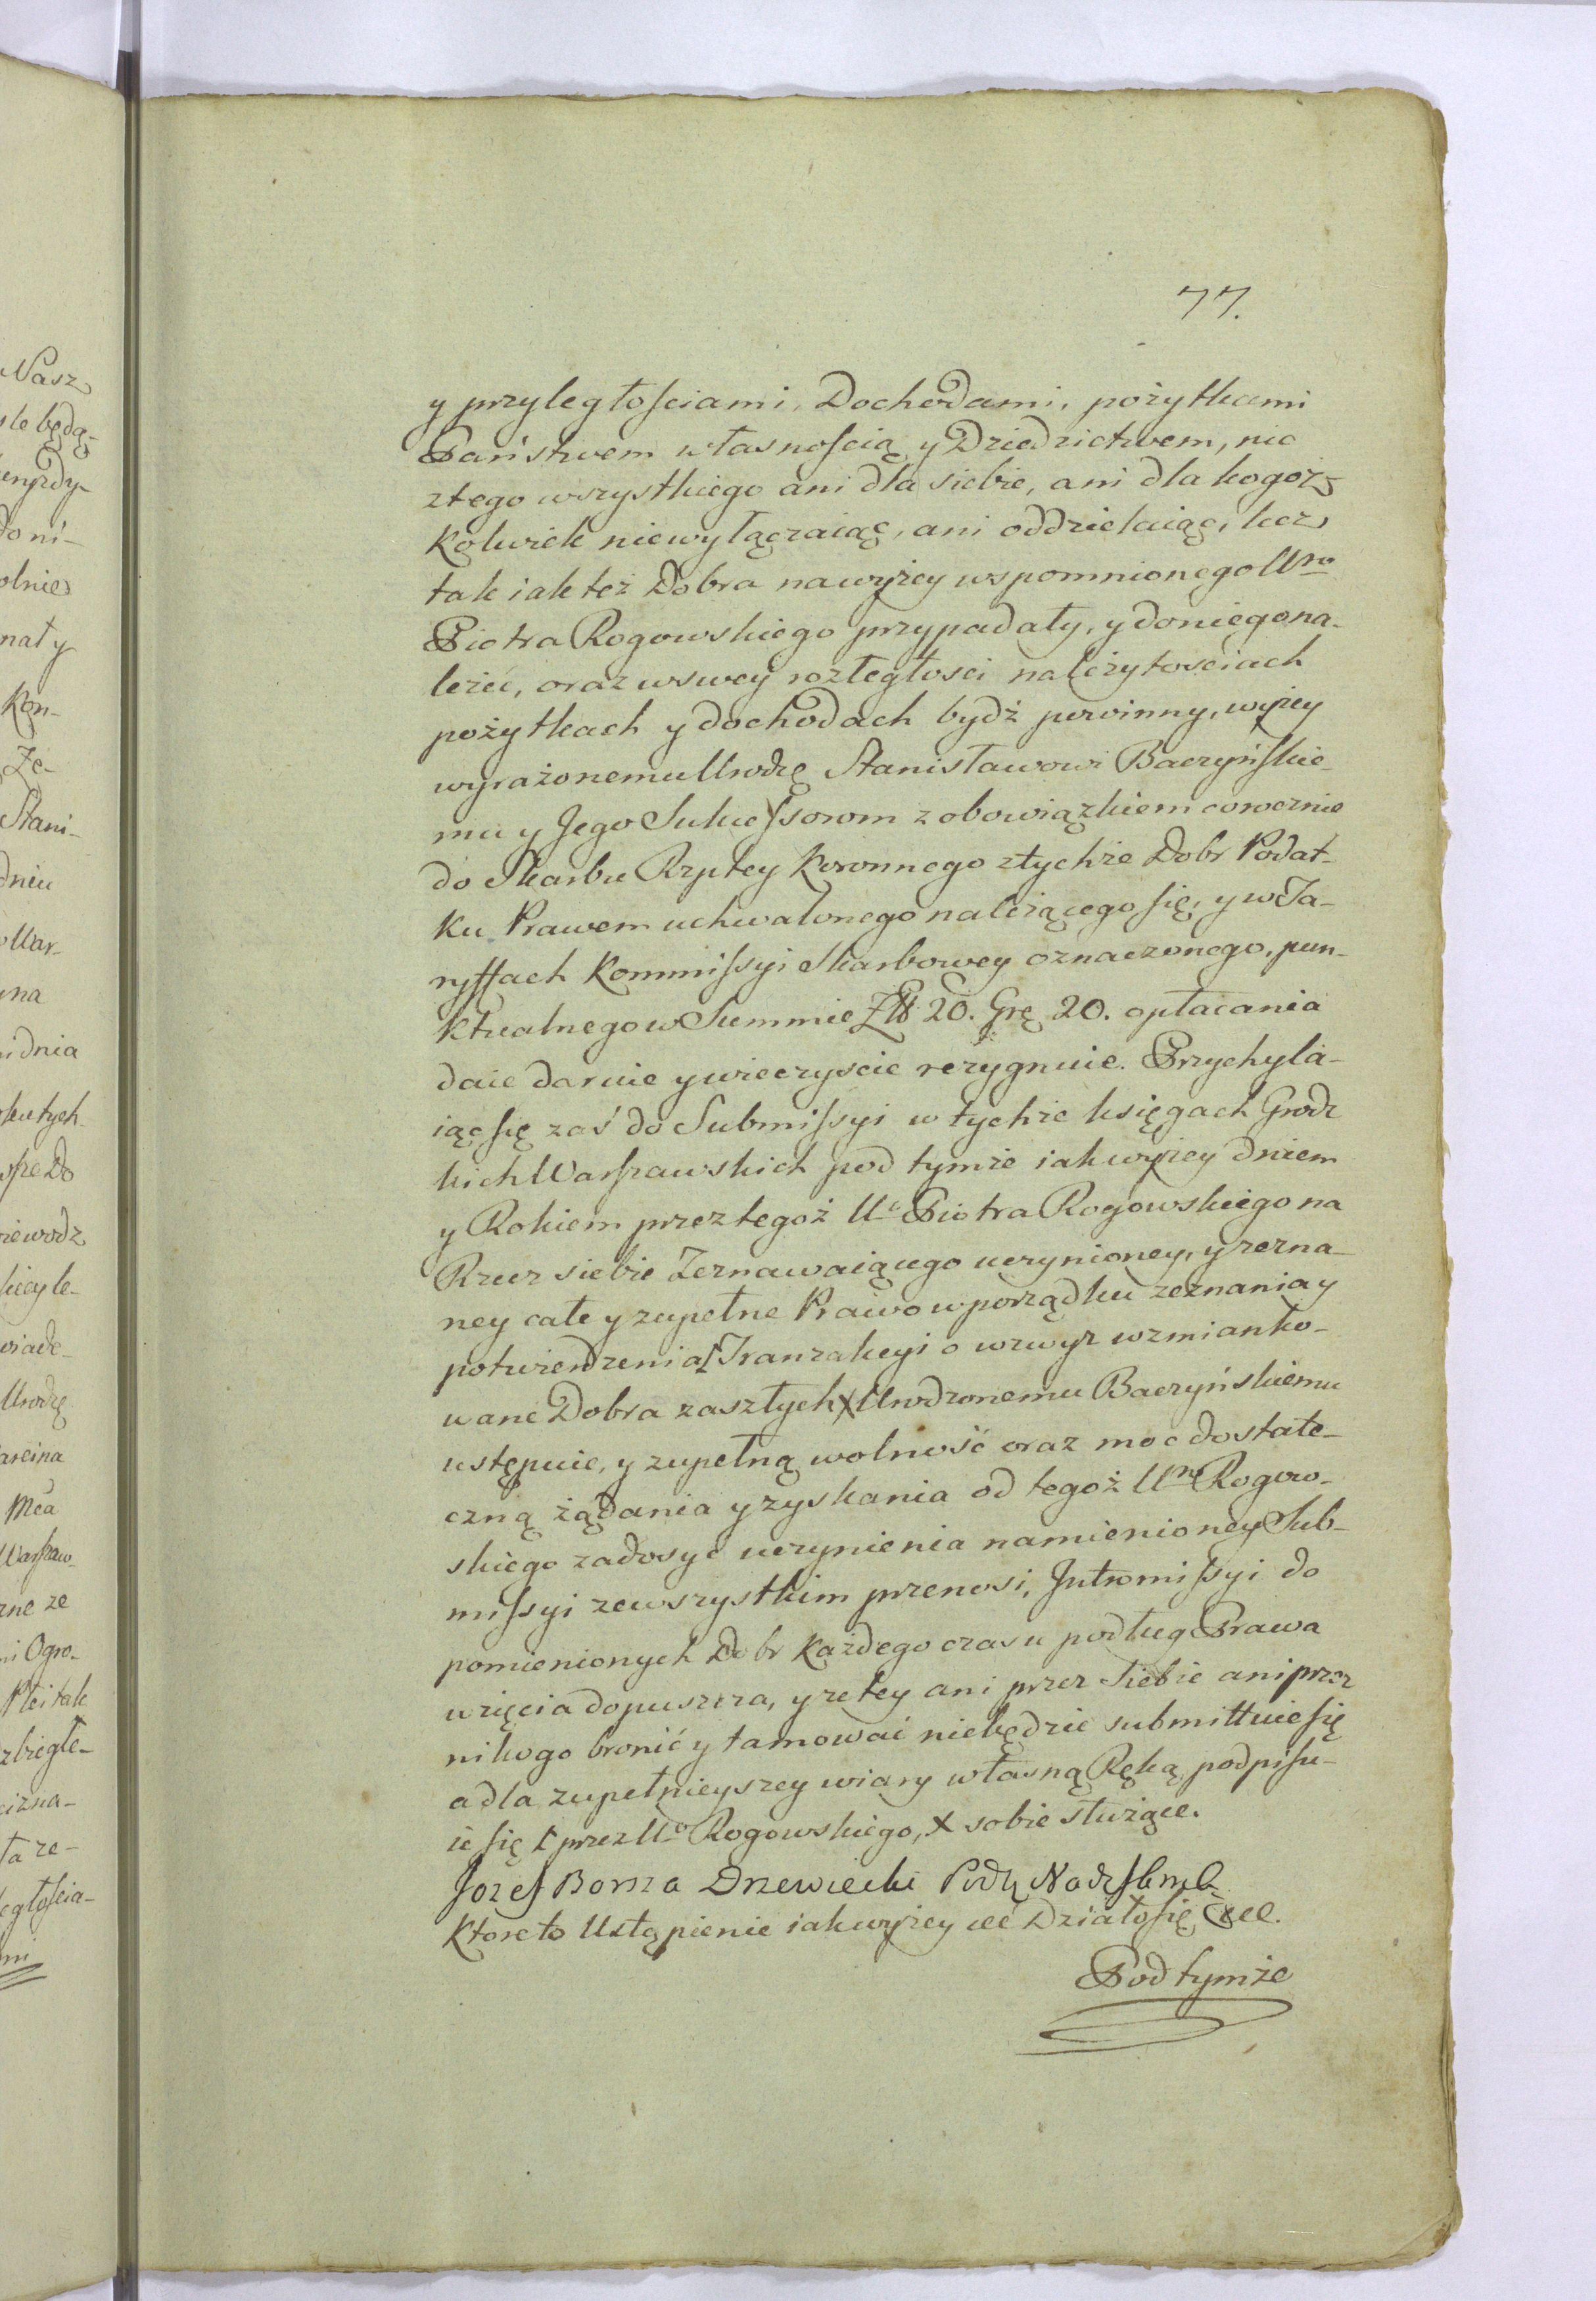 77.
y przyległościami, Dochodami, pożytkami
Państwem własnością y Dziedzictwem, nic
ztego wszystkiego ani dla siebie, ani dla kogoż
kolwiek niewyłączaiąc, ani oddzielaiąc, lecz
tak iak też Dobra nawyżey wspomnionego Uro
Piotra Rogowskiego przypadały, y doniego na-
leżeć, oraz wswey rozległosci należytosciach
pożytkach y dochodach bydź powinny, wyżey
wyrażonemu Urodzę Stanisławowi Baczyńskie-
mu y Jego Sukcessorom z obowiązkiem corocznie
do Skarbu Rzptey Koronnego ztychże Dobr Podat-
ku Prawem uchwalonego należącego się, y w Ta-
ryffach Kommissyi Skarbowey oznaczonego, pun-
ktualnego w Summie Zł 20. Grę 20. opłacania
daie daruie y wieczyscie rezygnuie. Przychyla-
iąc się zaś do Submissyi w tychże księgach Grodz
kich Warszawskich pod tymże iak wyżey dniem
y Rokiem przez tegoż Uo Piotra Rogowskiego na
Rzecz siebie Zeznawaiącego uczynioney, y zezna-
ney całe y zupełne Prawo w porządku zeznania y
potwierdzenia Tranzakcyi o wzwyż wzmianko-
wane Dobra zaszłych X Urodzonemu Baczyńskiemu
ustępuie, y zupełną wolność oraz moc dostate-
czną żądania y zyskania od tegoż Uro Rogow-
skiego zadosyć uczynienia namienioney Sub-
missyi zewszystkim przenosi, Jntromissyi do
pomienionych Dobr każdego czasu podług Prawa
wzięcia dopuszcza, y zetey ani przez siebie ani przez
nikogo bronić y tamować niebędzie submittuie się
a dla zupełnieyszey wiary własną Ręką podpisu-
ie się ł przez Uo Rogowskiego, X sobie służące.
Jozef Borza Drzewiecki
Ktore to Ustąpienie iak wyżey etc Działo się etc.
Pod tymże
Nasz
le będą-
doni-
olnie
nały
Kon-
Ze-
Stani-
dniu
War-
na
dnia
tych-
Do
wiade-
Urodzę
Mca
Warszaw
ne ze
Ogro-
tak
zbiegłe-
ta ze-
egłoscia-
mi